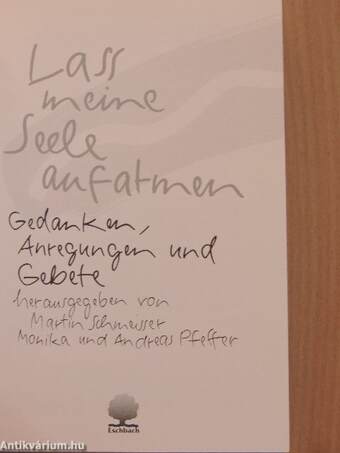 Lass
meine
Seele
aufatmen
Gedanken,
Anregungen und
Gebete
herausgegeben von
Martin Schmeisser
Monika und Andreas Pfeffer
Eschbach
Antikvárium.hu